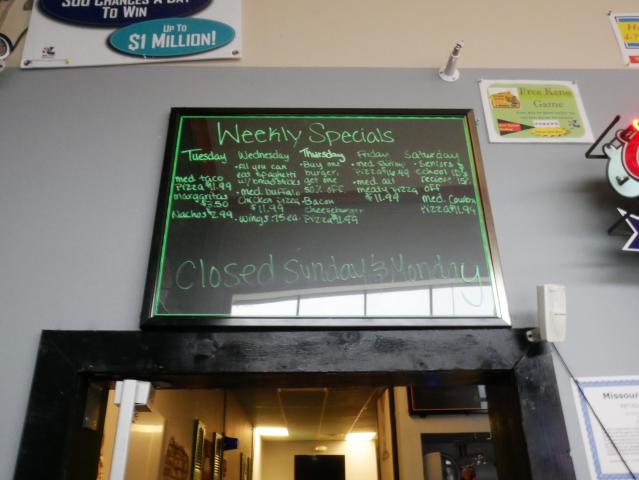 500 CHANCES A DAY
TO WIN
UP TO
$1 MILLION!
Free Keno
Game
Weekly Specials
Tuesday
med taco
Pizza $11.99
margaritas
$3.50
Nachos $2.99
Wednesday
• All you can
eat spaghetti
w/breadsticks
• med. buffalo
chicken pizza
$11.99
• wings .75 ea.
Thursday
• Buy one
burger,
get one
50% off
• Bacon
cheeseburger
Pizza $11.99
Friday
• med.
pizza
• med all
meaty pizza
$11.99
Saturday
• Seniors &
school ID's
receive 15%
off
med. Cowboy
Pizza $11.99
Closed Sunday & Monday
Missour